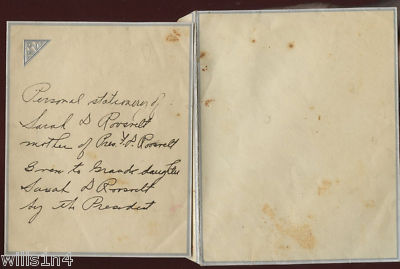 Personal stationery of
Sarah D Roosevelt
mother of Pres. F.D. Roosevelt
Given to Grand daughter
Sarah D Roosevelt
by the President
willis1n4